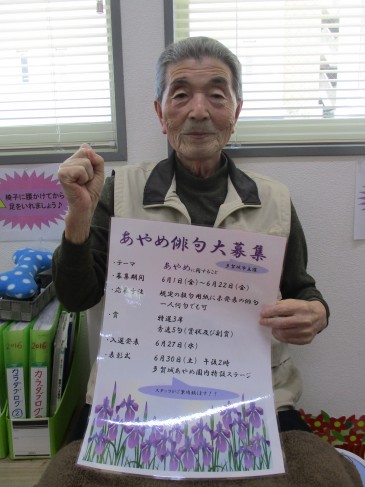 椅子に腰かけてから
足をいれましょう♪
あやめ俳句大募集
多賀城市主催
・テーマ あやめに関すること
・募集期間 6月1日(金)~6月22日(金)
・応募方法 規定の投句用紙に未発表の俳句
一人何句でも可
・賞 特選3席
秀逸5句(賞状及び副賞)
・入選発表 6月27日(水)
・表彰式 6月30日(土) 午後2時
多賀城あやめ園内特設ステージ
2016
カラダログ
②
2016
カラダログ